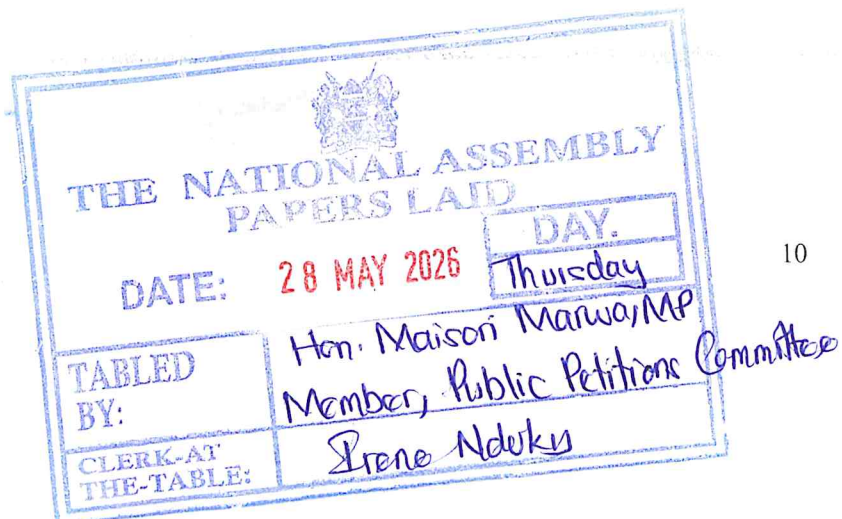 THE NATIONAL ASSEMBLY
PAPERS LAID
DATE: 28 MAY 2026
DAY.
Thursday
10
TABLED BY:
Hon. Maison Marwa, MP
Member, Public Petitions Committee
CLERK-AT THE-TABLE:
Irene Nduku